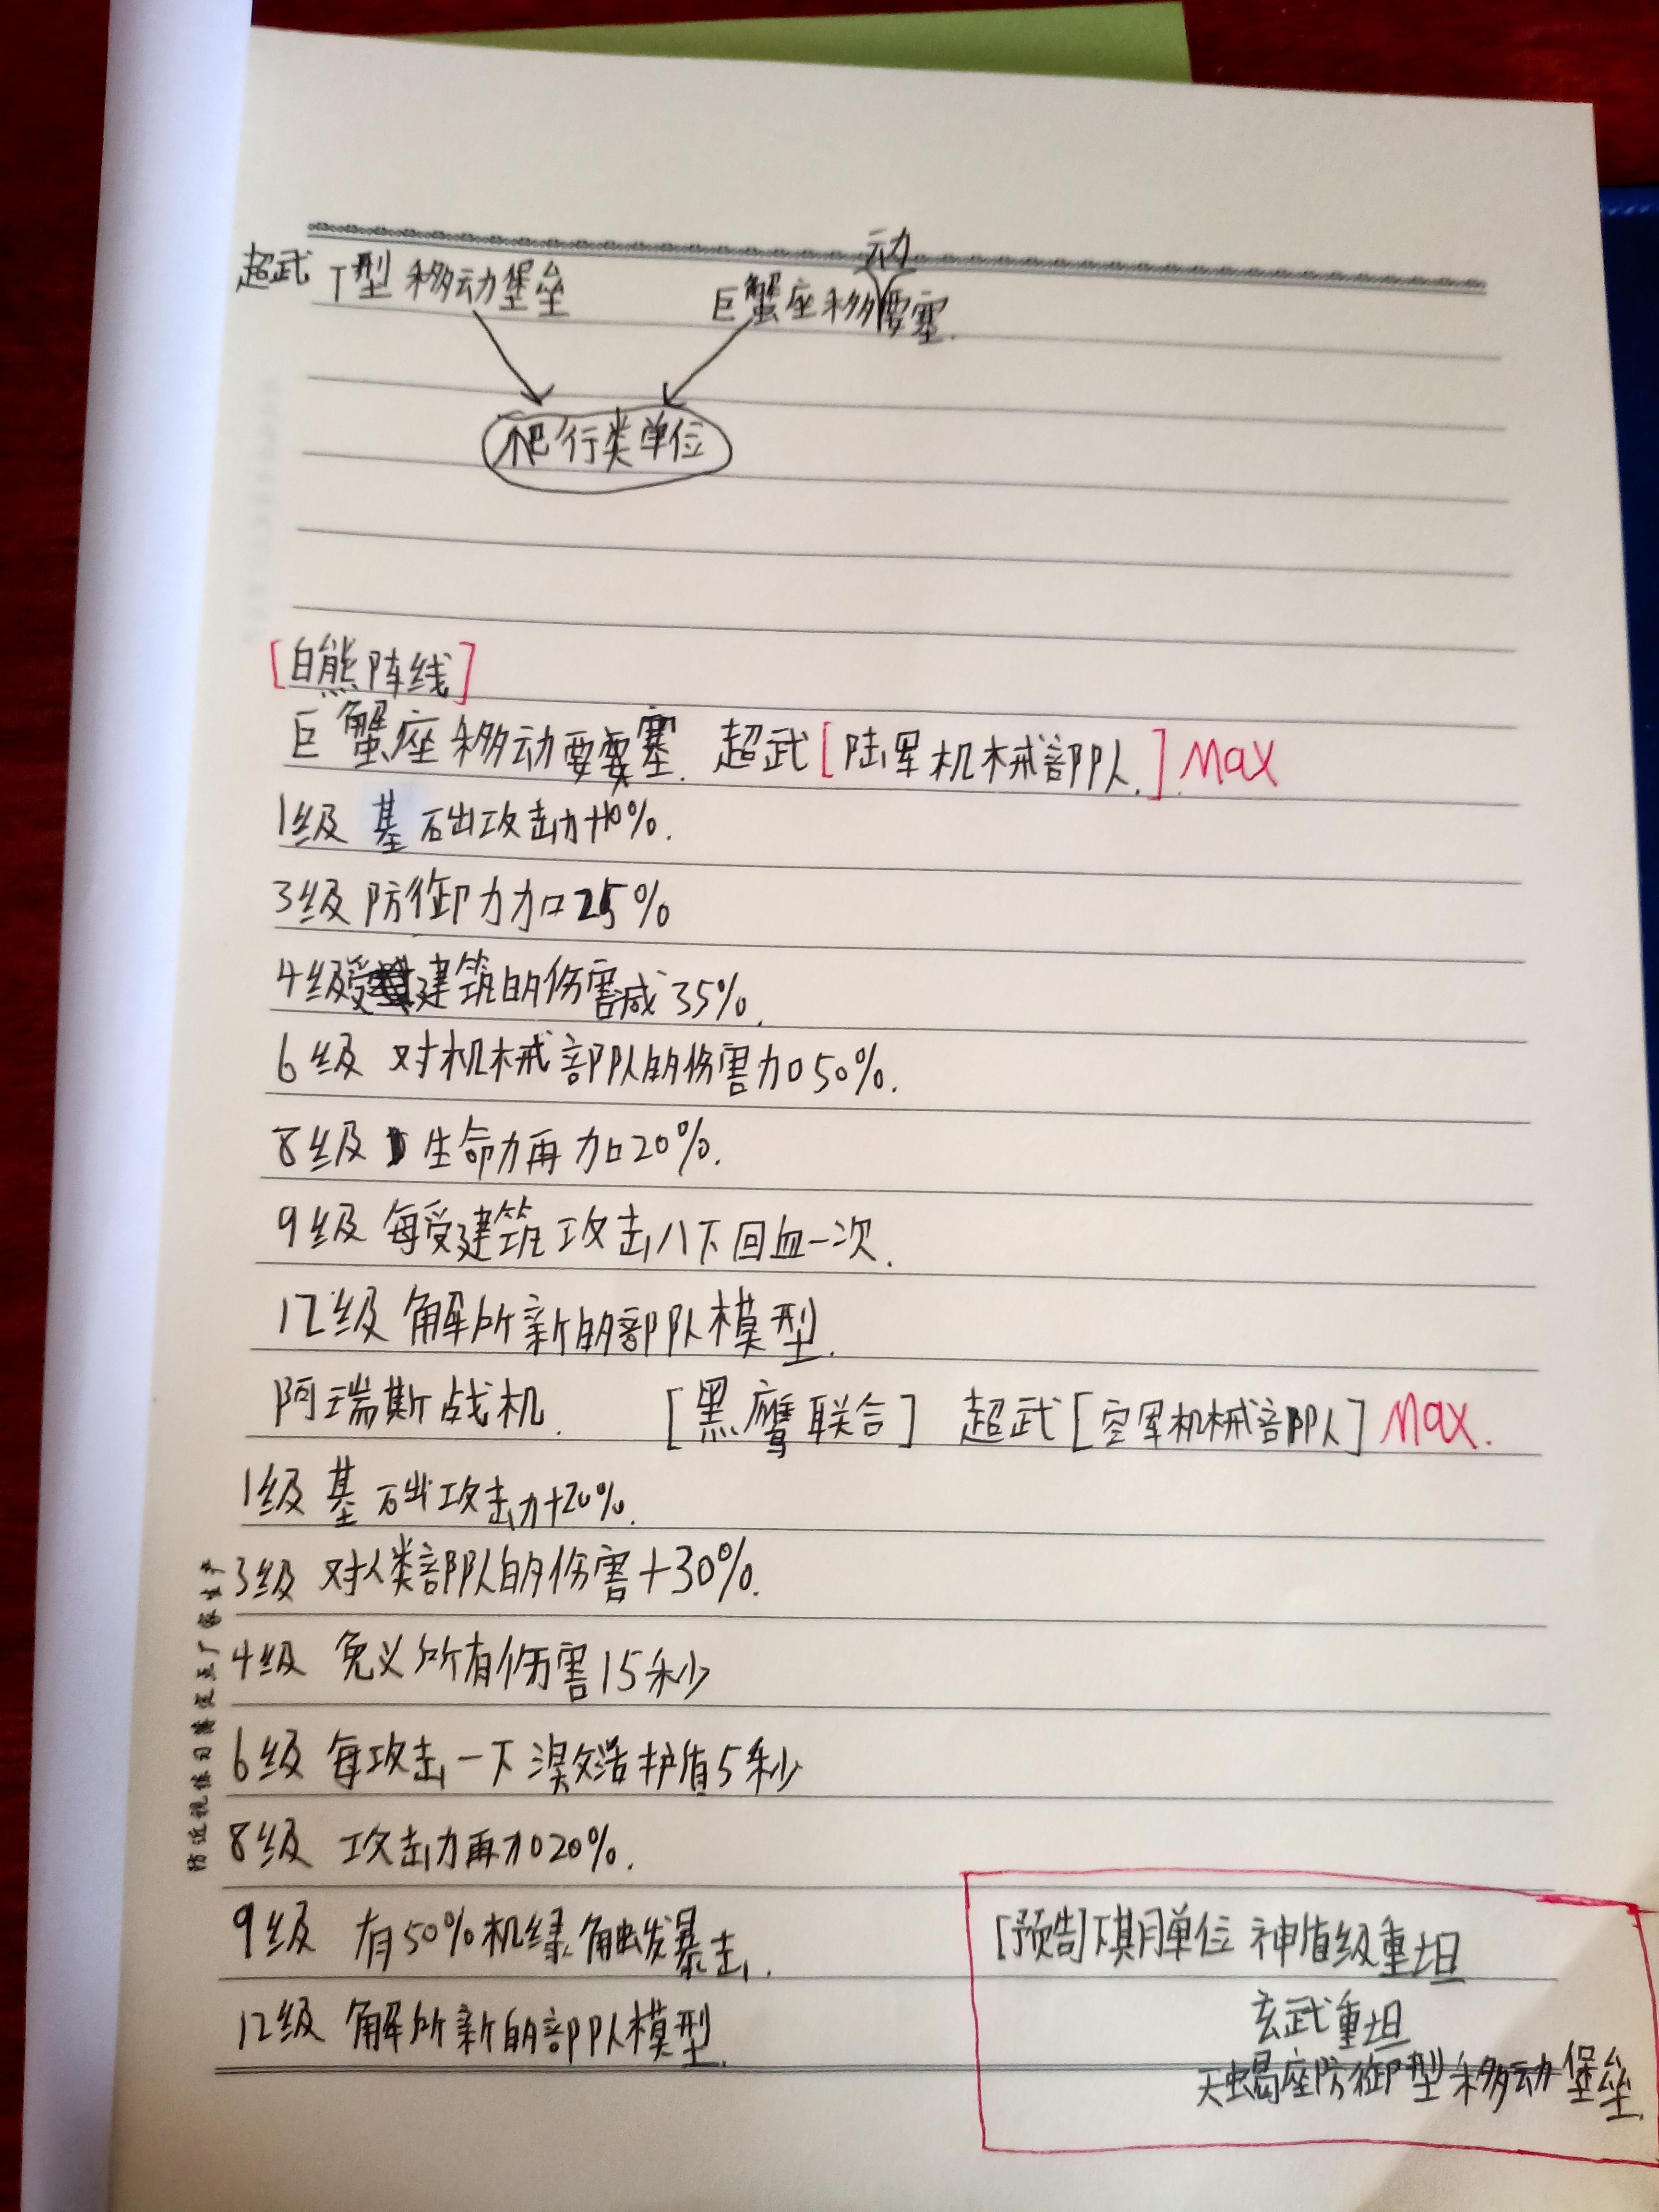 超武 T型移动堡垒 巨蟹座移动要塞.
爬行类单位
[白熊阵线]
巨蟹座移动要塞. 超武[陆军机械部队.] MaX
1级 基础攻击力+10%.
3级 防御力加25%
4级受建筑的伤害减35%.
6级 对机械部队的伤害加50%.
8级 生命力再加20%.
9级 每受建筑攻击八下回血一次.
12级 解所新的部队模型.
阿瑞斯战机. [黑鹰联合] 超武[空军机械部队] MaX.
1级 基础攻击力+20%.
3级 对人类部队的伤害+30%.
4级 免义所有伤害15秒
6级 每攻击一下激活护盾5秒
8级 攻击力再加20%.
9级 有50%机缘触发暴击.
12级 解所新的部队模型.
[预告]下期单位 神盾级重坦
玄武重坦
天蝎座防御型移动堡垒.
防近视练习簿定点厂家生产